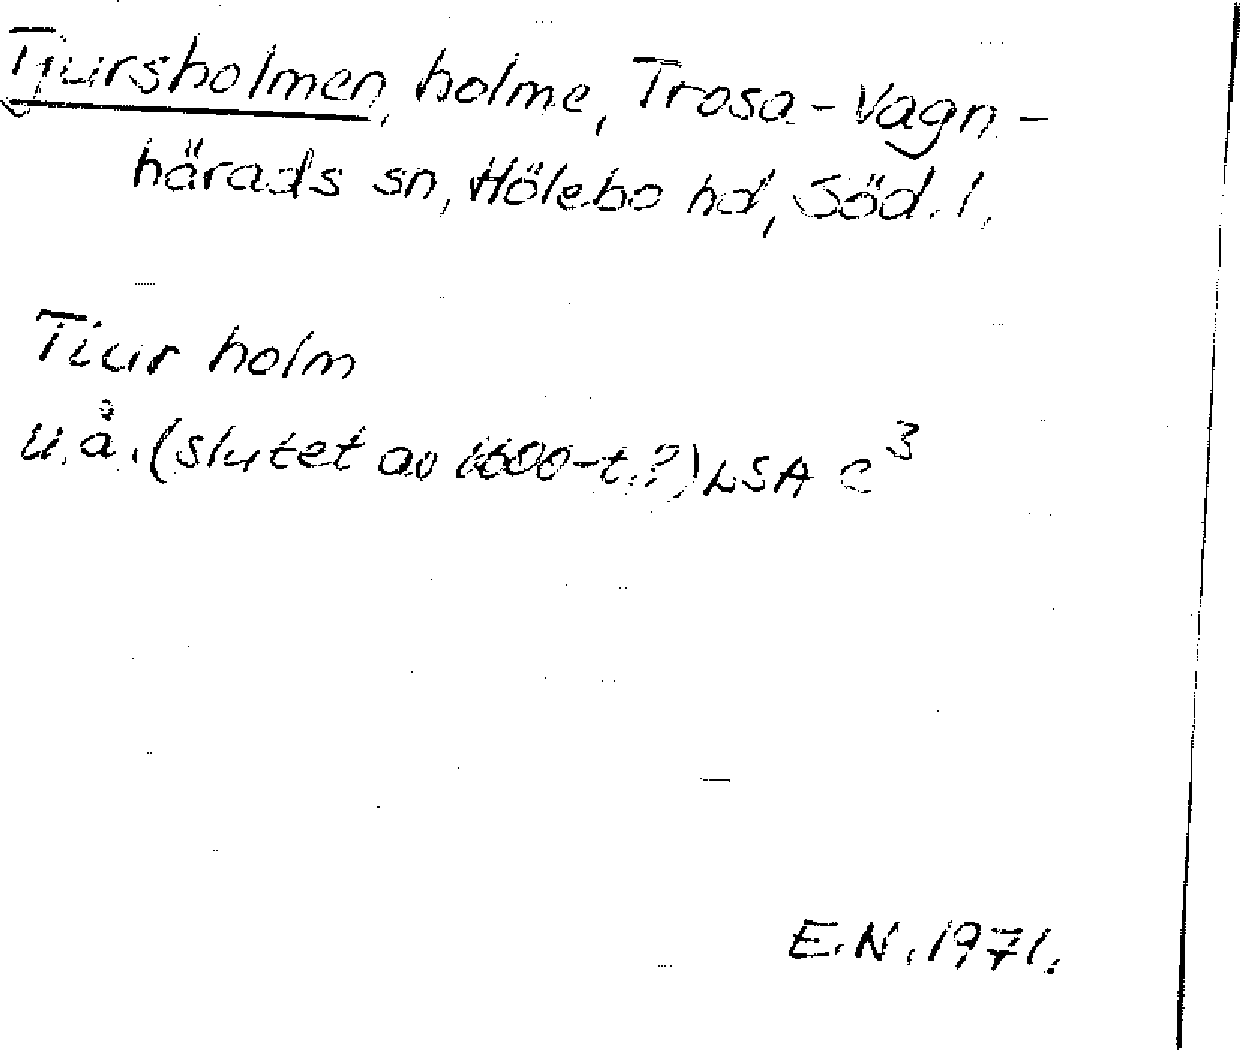 Tjursholmen, holme, Trosa-Vagn-
härads sn, Hölebo hd, Söd. l.
Tiur holm
u.å. (slutet av 1600-t.?) LSA c³
E.N. 1971.